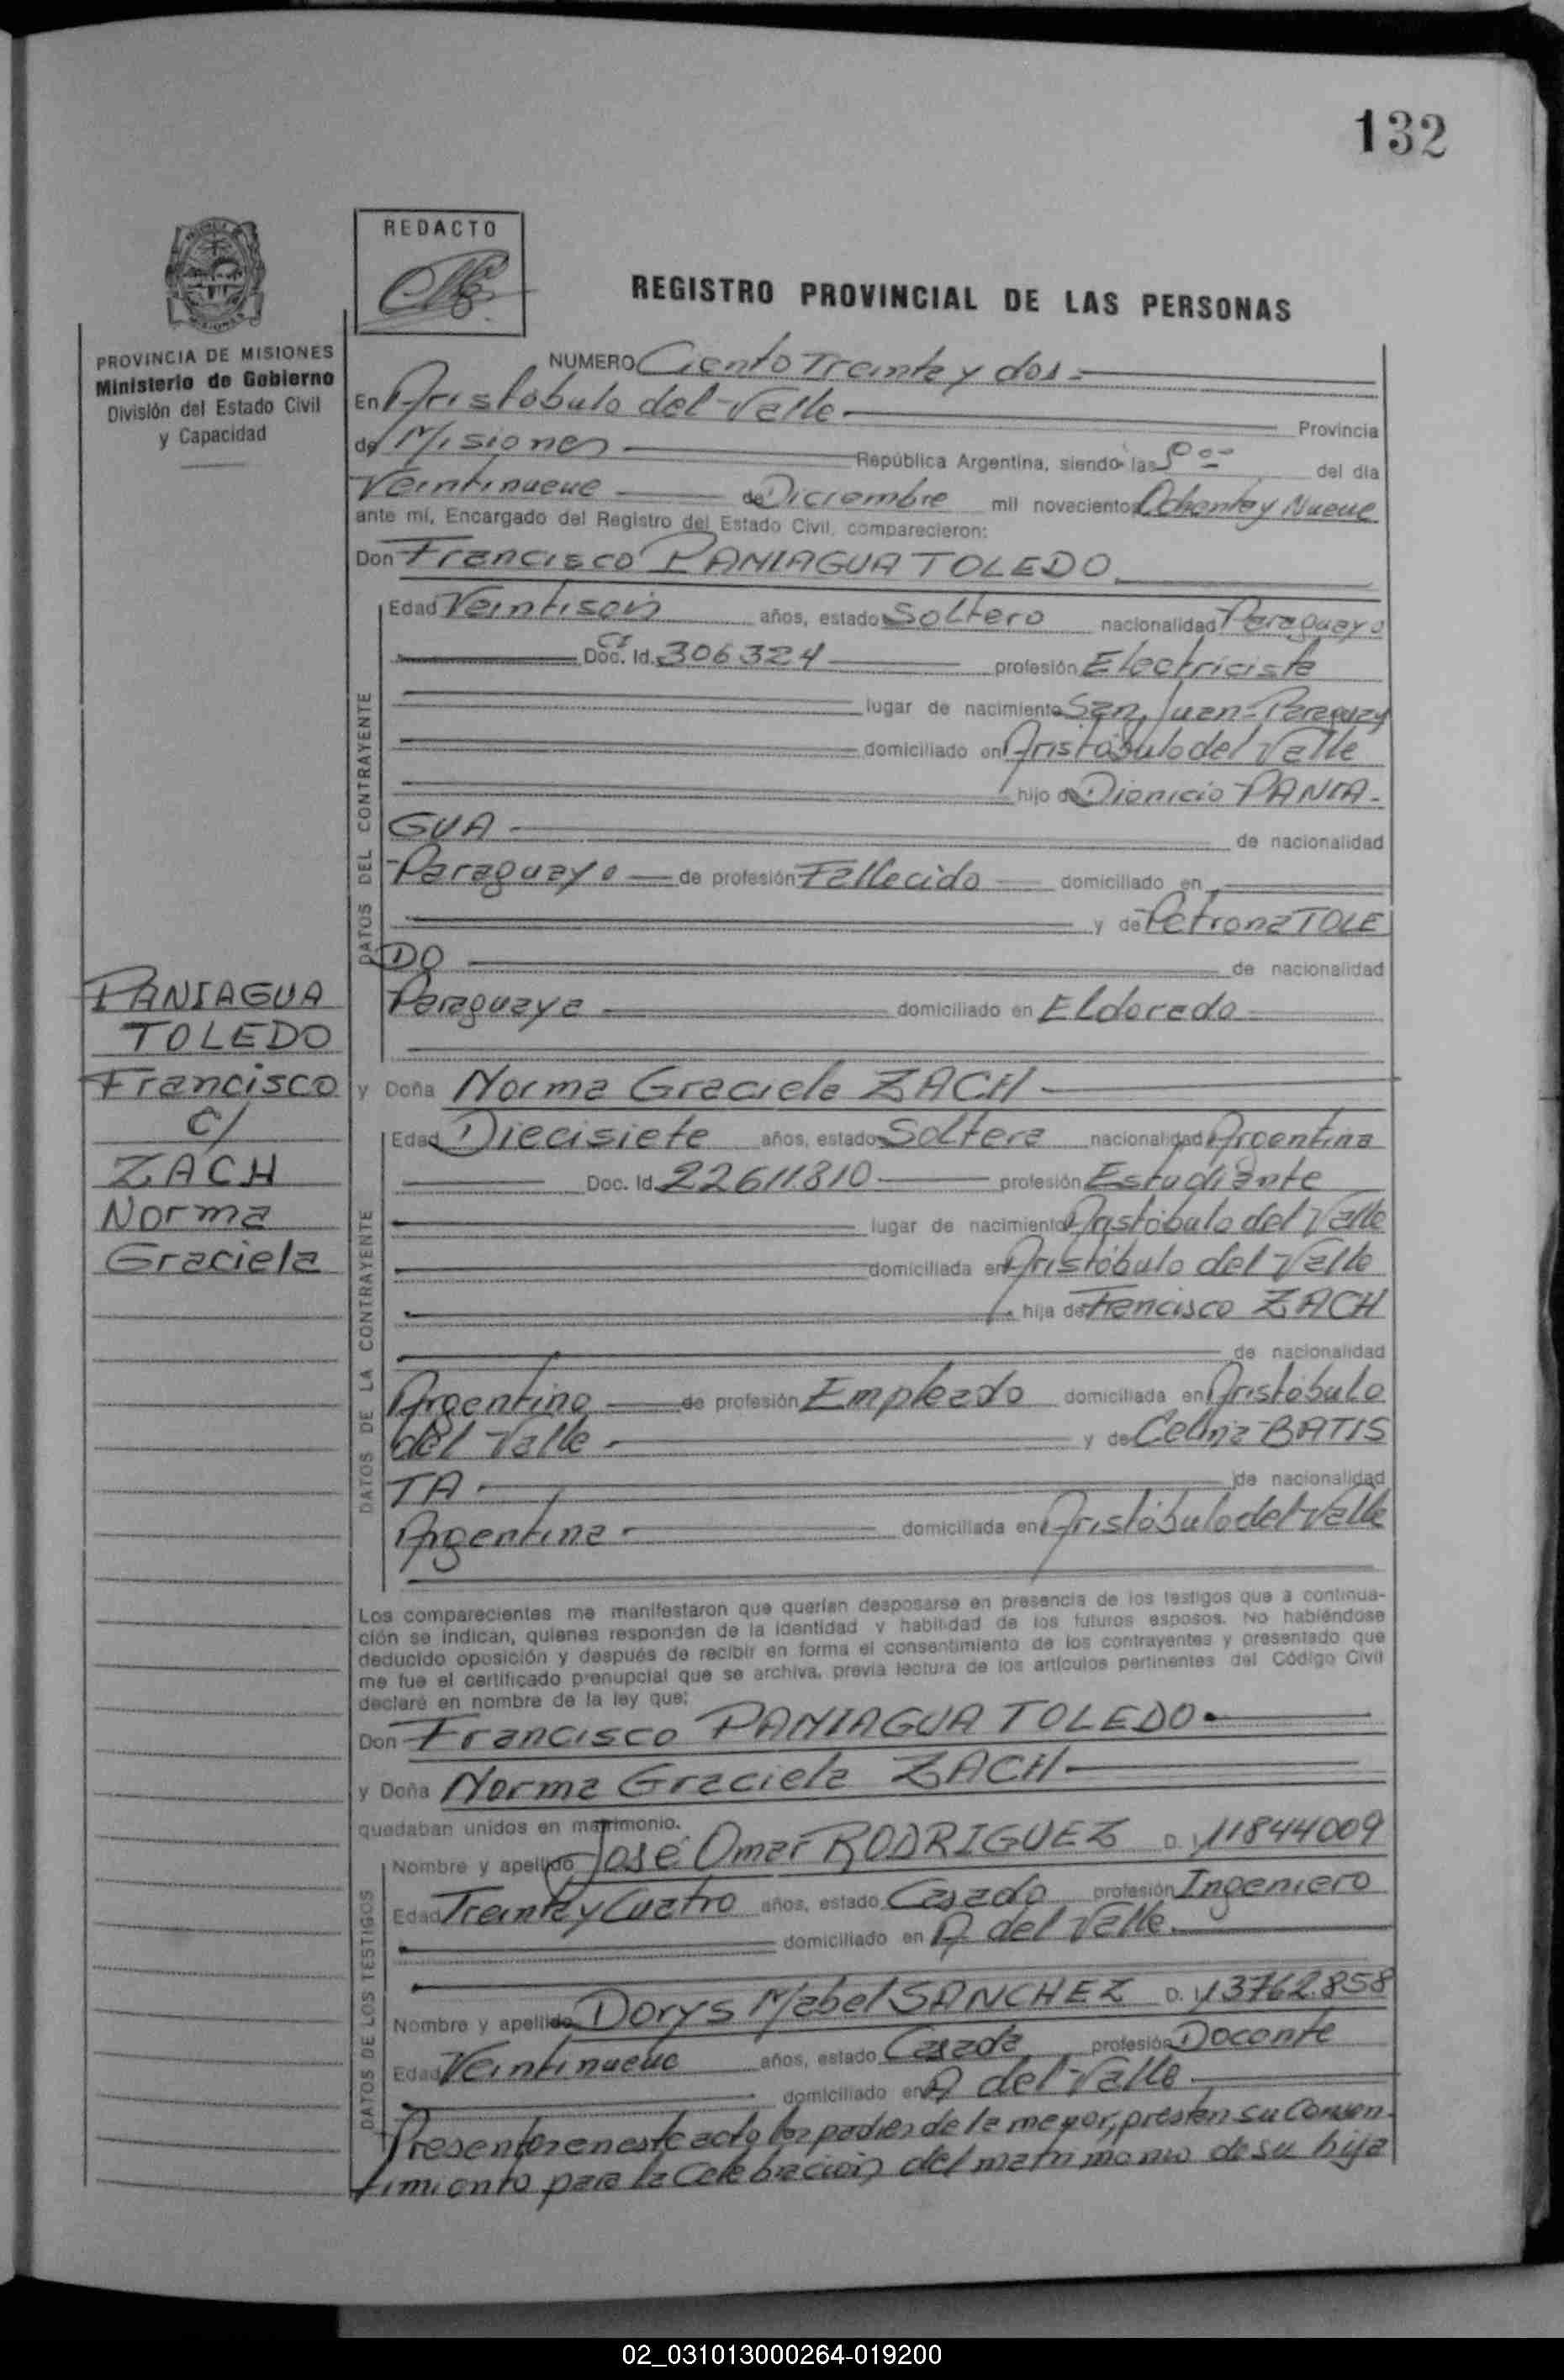 132
REDACTO
REGISTRO PROVINCIAL DE LAS PERSONAS
PROVINCIA DE MISIONES
Ministerio de Gobierno
División del Estado Civil
y Capacidad
NUMERO Ciento Treinta y dos
En Aristóbulo del Valle Provincia
de Misiones República Argentina, siendo las del día
Veintinueve de Diciembre mil novecientos Ochenta y Nueve
ante mí, Encargado del Registro del Estado Civil, comparecieron:
Don Francisco PANIAGUA TOLEDO
Edad Veintiseis años, estado Soltero nacionalidad Paraguayo
CI
Doc. Id. 306324 profesión Electricista
lugar de nacimiento San Juan-Paraguay
domiciliado en Aristóbulo del Valle
hijo de Dionicio PANIA-
GUA de nacionalidad
Paraguayo de profesión Fallecido domiciliado en
y de Petrona TOLE
DO de nacionalidad
Paraguaya domiciliado en Eldorado
DATOS DEL CONTRAYENTE
PANIAGUA
TOLEDO
Francisco
C/
ZACH
Norma
Graciela
y Doña Norma Graciela ZACH
Edad Diecisiete años, estado Soltera nacionalidad Argentina
Doc. Id. 22611.810 profesión Estudiante
lugar de nacimiento Aristóbulo del Valle
domiciliada en Aristóbulo del Valle
hija de Francisco ZACH
de nacionalidad
Argentino de profesión Empleado domiciliada en Aristóbulo
del Valle y de Celina BATIS
TA de nacionalidad
Argentina domiciliada en Aristóbulo del Valle
DATOS DE LA CONTRAYENTE
Los comparecientes me manifestaron que querían desposarse en presencia de los testigos que a continua-
ción se indican, quienes responden de la identidad y habilidad de los futuros esposos. No habiéndose
deducido oposición y después de recibir en forma el consentimiento de los contrayentes y presentado que
me fue el certificado prenupcial que se archiva, previa lectura de los artículos pertinentes del Código Civil
declaré en nombre de la ley que:
Don Francisco PANIAGUA TOLEDO
y Doña Norma Graciela ZACH
quedaban unidos en matrimonio.
Nombre y apellido José Omar RODRIGUEZ D. I. 11844009
Edad Treinta y Cuatro años, estado Casado profesión Ingeniero
domiciliado en A del Valle
Nombre y apellido Dorys Mabel SANCHEZ D. I. 13762.858
Edad Veintinueve años, estado Casada profesión Docente
domiciliado en A del Valle
DATOS DE LOS TESTIGOS
Presentes en este acto los padres de la menor, presten su consen-
timiento para la Celebración del matrimonio de su hija
02_031013000264-019200